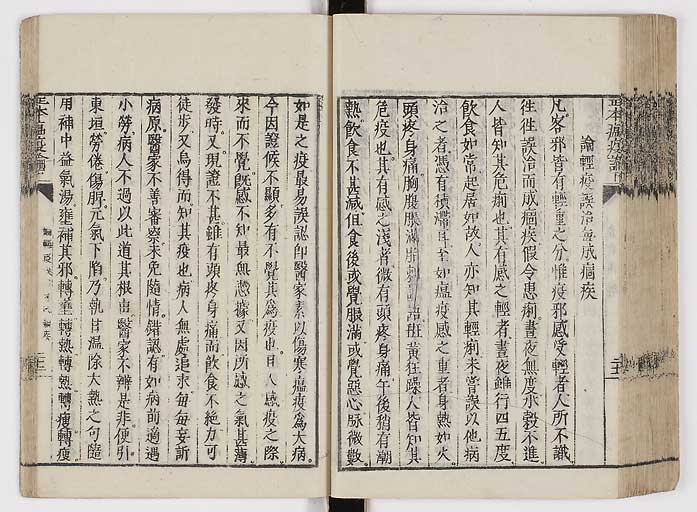 論輕疫誤治每成痼疾
凡客邪皆有輕重之分惟疫邪感受輕者人所不識
往往誤治而成痼疾假令患痢晝夜無度水穀不進
人皆知其危痢也其有感之輕者晝夜雖行四五度
飲食如常起居如故人亦知其輕痢未嘗誤以他病
治之者憑有積滯耳至如瘟疫感之重者身熱如火
頭疼身痛胸腹脹滿胎刺譫語斑黃狂躁人皆知其
危疫也其有感之淺者微有頭疼身痛午後稍有潮
熱飲食不甚減但食後或覺脹滿或覺惡心脉微數
如是之疫最易誤認即醫家素以傷寒瘟疫為大病
今因證候不顯多有不覺其為疫也且人感疫之際
來而不覺既感不知最無憑據又因所感之氣甚薄
發時又現證不甚雖有頭疼身痛而飲食不絶力可
徒步又烏得而知其疫也病人無處追求每每妄訴
病原醫家不善審察未免隨情錯認有如病前適遇
小勞病人不過以此道其根由醫家不辨是非便引
東垣勞倦傷脾元氣下陷乃執甘溫除大熱之句隨
用補中益氣湯壅補其邪轉壅轉熱轉熱轉瘦轉瘦